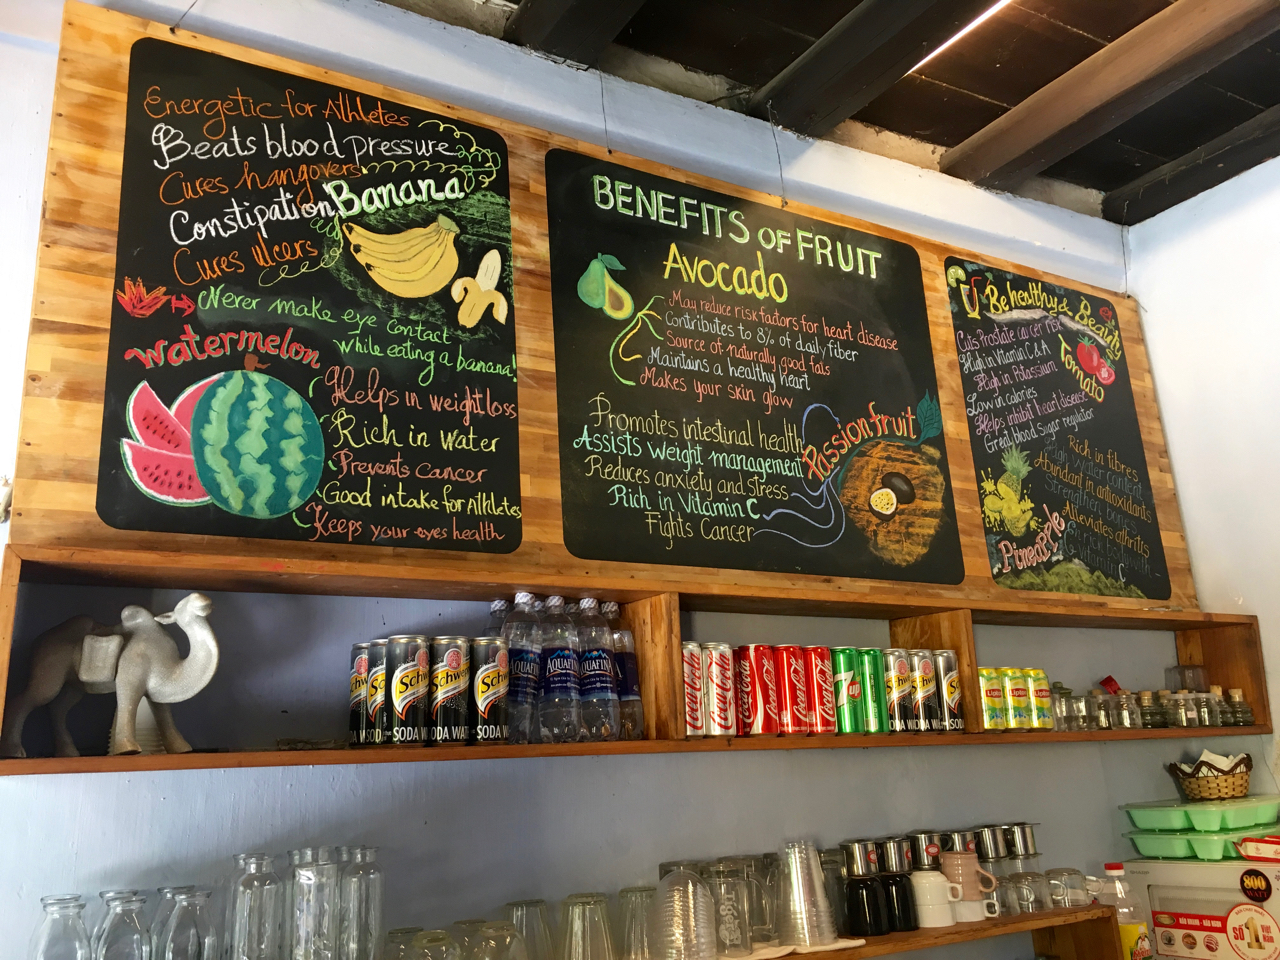 Energetic for Athletes
Beats blood pressure
Cures hangovers
Constipation
Cures ulcers
Banana
Never make eye contact
while eating a banana!
Watermelon
Helps in weight loss
Rich in water
Prevents cancer
Good intake for Athletes
Keeps your eyes health
BENEFITS OF FRUIT
Avocado
May reduce risk factors for heart disease
Contributes to 8% of daily fiber
Source of naturally good fats
Maintains a healthy heart
Makes your skin glow
Passion fruit
Promotes intestinal health
Assists weight management
Reduces anxiety and stress
Rich in Vitamin C
Fights Cancer
Be healthy & Beauty
Tomato
High in Vitamin C & A
High in Potassium
Low in calories
Helps inhibit heart disease
Great blood sugar regulator
Pineapple
Rich in fibres
High water content
Abundant in antioxidants
Strengthen bones
Alleviates athritis
Schw
SODA W
Schw
WATER
Schw
SODA W
AQUAFINA
AQUAFINA
AQUAFINA
Coca-Cola
Coca-Cola
Coca-Cola
Coca-Cola
Coca-Cola
Coca-Cola
7up
Schw
SODA WA
Lipton
Lipton
Lipton
800
WATT
SỐ 1
Việt Nam